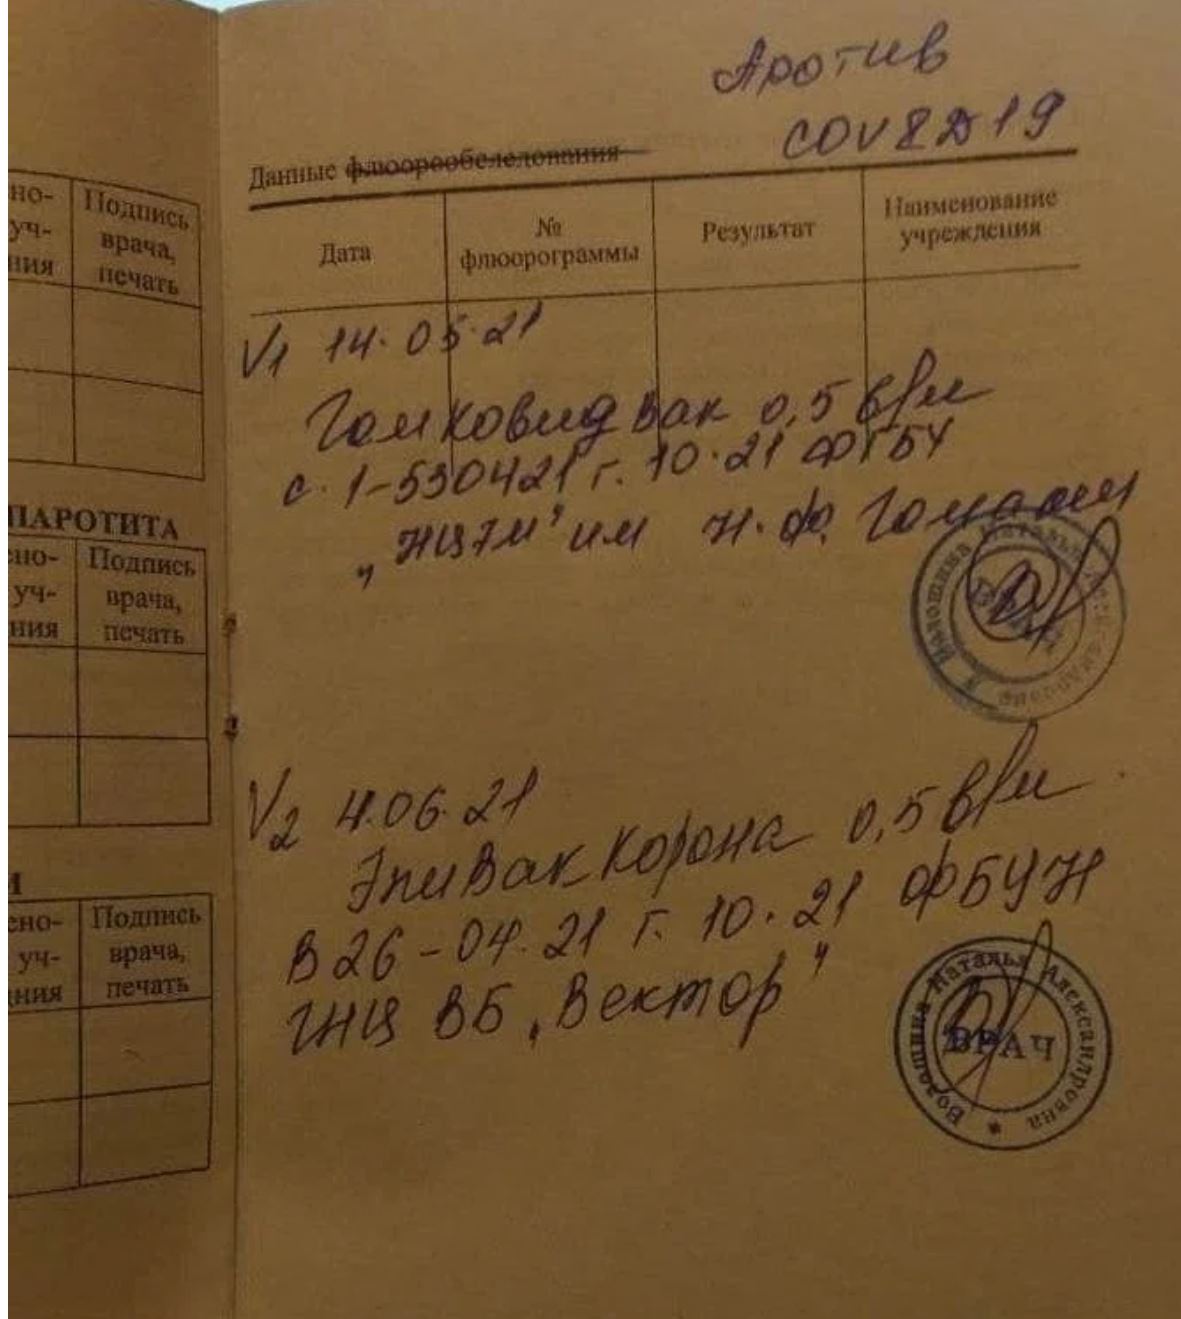 Против
COV8D19
Данные флюорообследования
Дата
№
флюорограммы
Результат
Наименование
учреждения
V1 14.05.21
Гамковидвак 0,5 в/м
с. 1-530421 г. 10.21 ФГБУ
„НЦЭМ" им Н.Ф. Гамалеи
Наталья
V2 4.06.21
ЭпиВакКорона 0,5 в/м
В26-04.21 г. 10.21 ФБУН
ГНЦ ВБ „Вектор"
Наталья Александровна
ВРАЧ
но-
уч-
ния
Подпись
врача,
печать
ПАРОТИТА
но-
уч-
ния
Подпись
врача,
печать
но-
уч-
ния
Подпись
врача,
печать